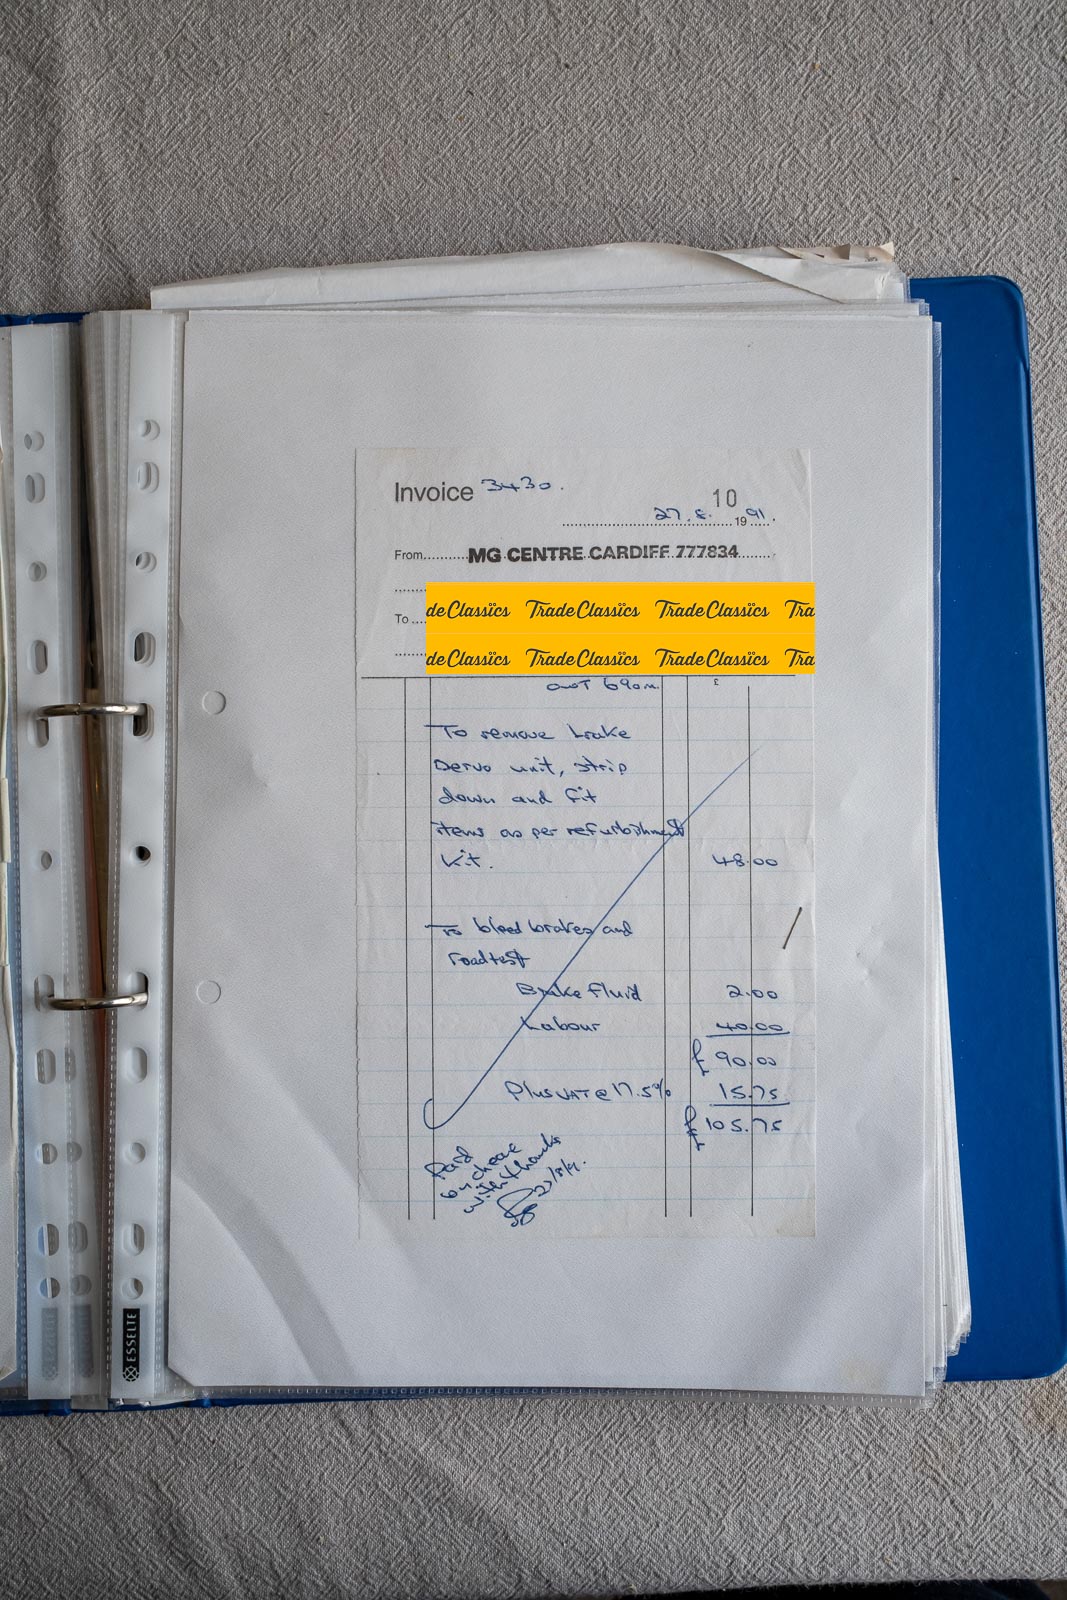 Invoice 3430.
10
27.8.1991.
From MG CENTRE CARDIFF 777834
deClassics TradeClassics TradeClassics Tra
To
deClassics TradeClassics TradeClassics Tra
£
To remove brake
Servo unit, strip
down and fit
items as per refurbishment
Kit. 48.00
To bleed brakes and
roadtest
Brake Fluid 2.00
Labour 40.00
£ 90.00
Plus VAT @ 17.5% 15.75
£ 105.75
Paid
by cheque
with thanks
27/8/91.
ESSELTE